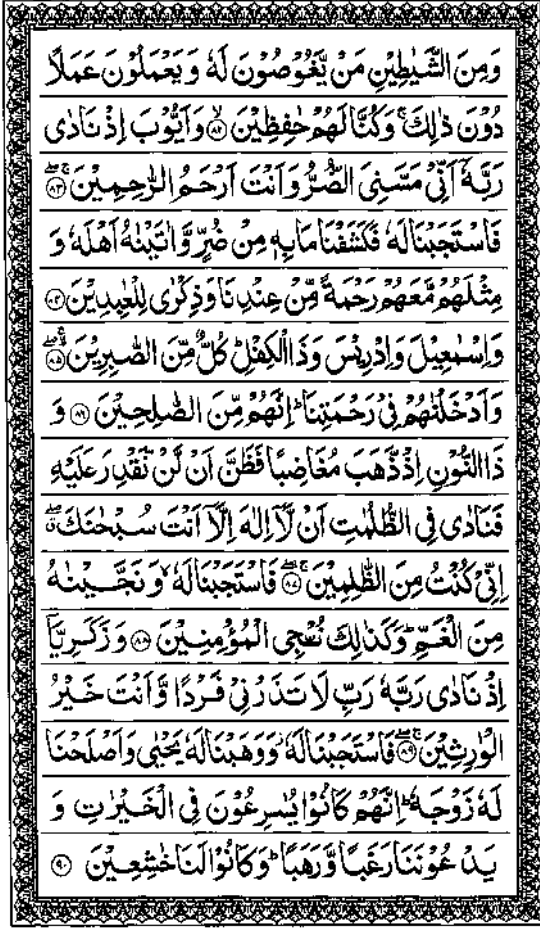 وَمِنَ الشَّيٰطِيْنِ مَنْ يَّغُوْصُوْنَ لَهٗ وَيَعْمَلُوْنَ عَمَلًا
دُوْنَ ذٰلِكَ ۚ وَكُنَّا لَهُمْ حٰفِظِيْنَ ۙ﴿۸۲﴾ وَاَيُّوْبَ اِذْ نَادٰى
رَبَّهٗۤ اَنِّيْ مَسَّنِيَ الضُّرُّ وَاَنْتَ اَرْحَمُ الرّٰحِمِيْنَ ۚۖ﴿۸۳﴾
فَاسْتَجَبْنَا لَهٗ فَكَشَفْنَا مَا بِهٖ مِنْ ضُرٍّ وَّاٰتَيْنٰهُ اَهْلَهٗ وَ
مِثْلَهُمْ مَّعَهُمْ رَحْمَةً مِّنْ عِنْدِنَا وَذِكْرٰى لِلْعٰبِدِيْنَ ﴿۸۴﴾
وَاِسْمٰعِيْلَ وَاِدْرِيْسَ وَذَا الْكِفْلِ ؕ كُلٌّ مِّنَ الصّٰبِرِيْنَ ۚۖ﴿۸۵﴾
وَاَدْخَلْنٰهُمْ فِيْ رَحْمَتِنَا ؕ اِنَّهُمْ مِّنَ الصّٰلِحِيْنَ ﴿۸۶﴾ وَ
ذَا النُّوْنِ اِذْ ذَّهَبَ مُغَاضِبًا فَظَنَّ اَنْ لَّنْ نَّقْدِرَ عَلَيْهِ
فَنَادٰى فِي الظُّلُمٰتِ اَنْ لَّاۤ اِلٰهَ اِلَّاۤ اَنْتَ سُبْحٰنَكَ ۖ
اِنِّيْ كُنْتُ مِنَ الظّٰلِمِيْنَ ۚۖ﴿۸۷﴾ فَاسْتَجَبْنَا لَهٗ ۙ وَنَجَّيْنٰهُ
مِنَ الْغَمِّ ؕ وَكَذٰلِكَ نُـنْجِي الْمُؤْمِنِيْنَ ﴿۸۸﴾ وَزَكَرِيَّاۤ
اِذْ نَادٰى رَبَّهٗ رَبِّ لَا تَذَرْنِيْ فَرْدًا وَّاَنْتَ خَيْرُ
الْوٰرِثِيْنَ ۚۖ﴿۸۹﴾ فَاسْتَجَبْنَا لَهٗ ؗ وَوَهَبْنَا لَهٗ يَحْيٰى وَاَصْلَحْنَا
لَهٗ زَوْجَهٗ ؕ اِنَّهُمْ كَانُوْا يُسٰرِعُوْنَ فِي الْخَيْرٰتِ وَ
يَدْعُوْنَنَا رَغَبًا وَّرَهَبًا ؕ وَكَانُوْا لَنَا خٰشِعِيْنَ ﴿۹۰﴾